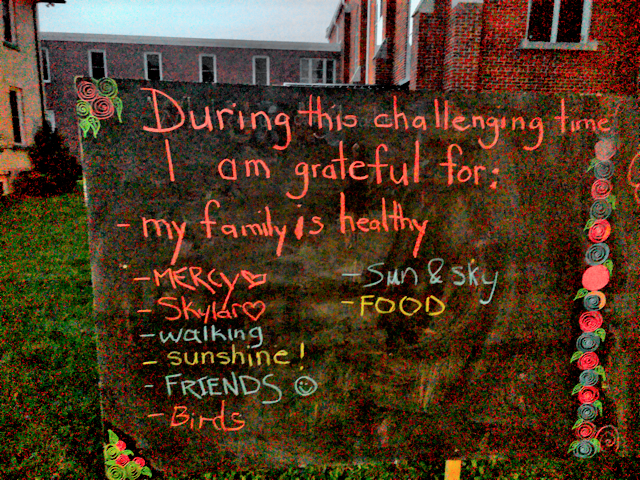 During this challenging time
I am grateful for:
- my family is healthy
- MERCY
- Skylar
- walking
- sunshine!
- FRIENDS
- Birds
- Sun & sky
- FOOD